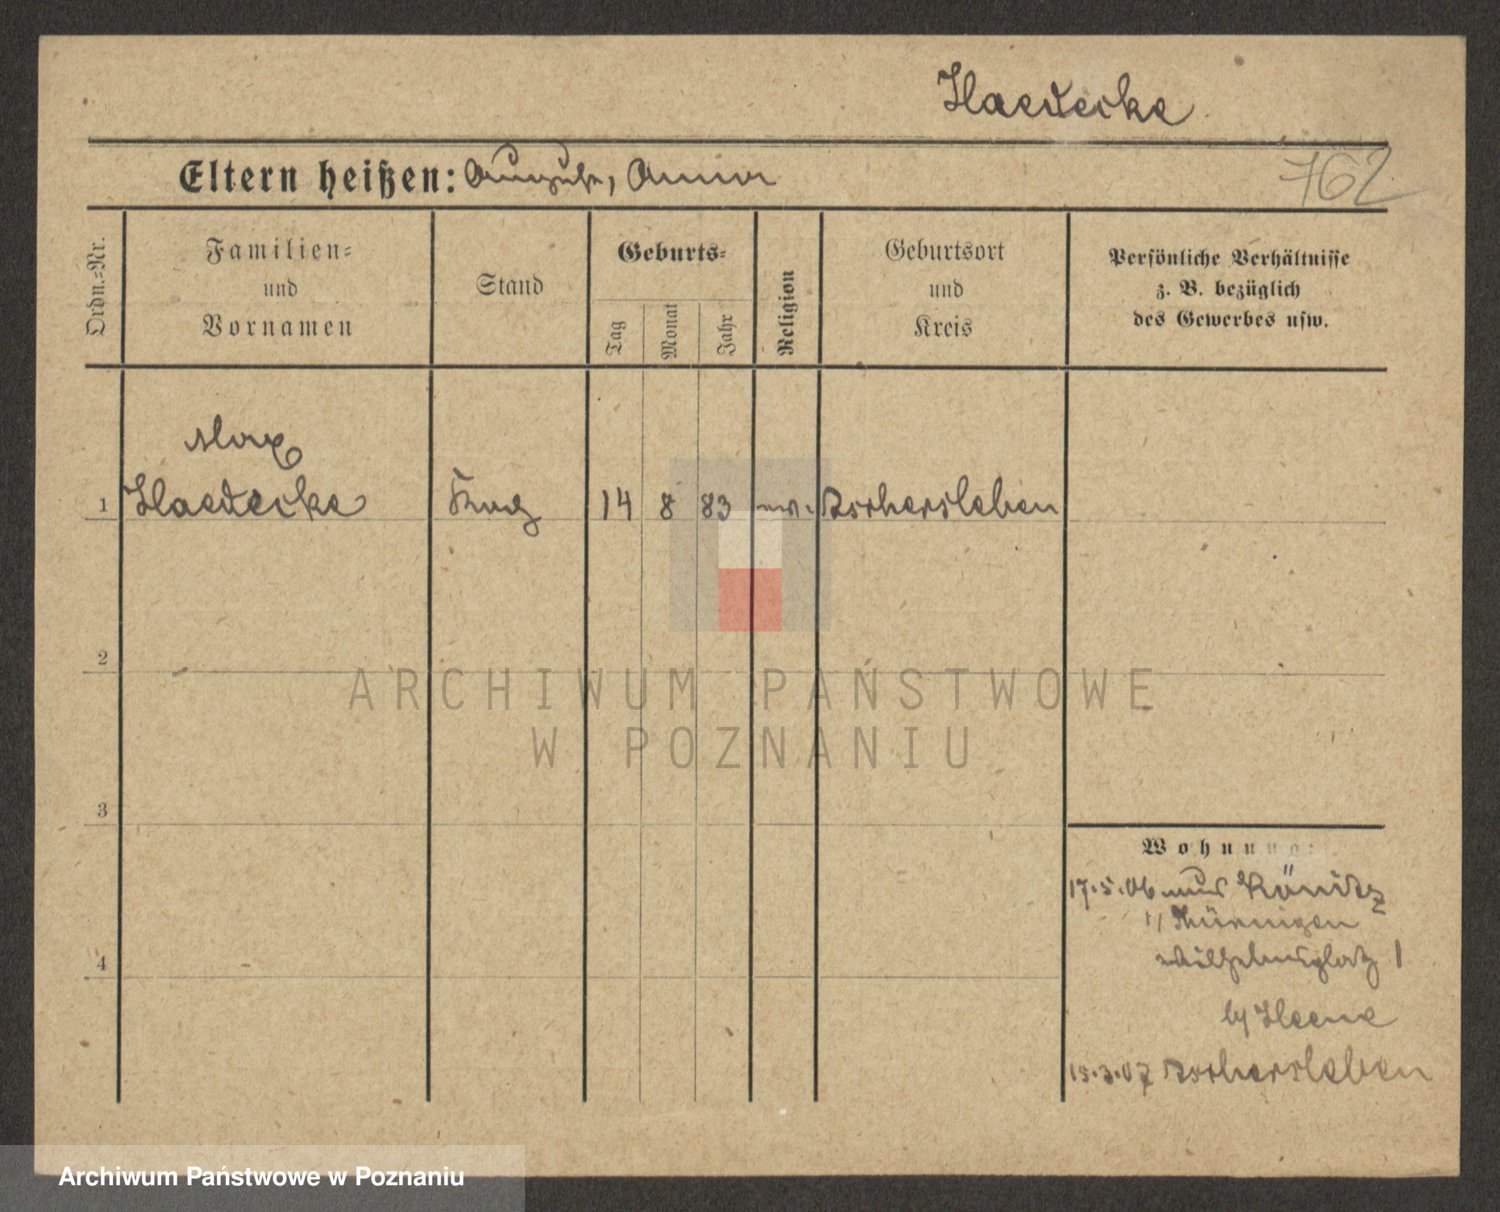 Haedecke
Eltern heißen: August, Anna
762
Ordn.=Nr.
Familien=
und
Vornamen
Stand
Geburts=
Tag
Monat
Jahr
Religion
Geburtsort
und
Kreis
Persönliche Verhältnisse
z. B. bezüglich
des Gewerbes usw.
Max
1 Haedecke 14 8 83 ev. Aschersleben
2
3
4
Wohnung:
17.5.06 aus Könitz
i/ Thüringen
Wilhelmsplatz 1
by
15.3.07 Aschersleben
ARCHIWUM PAŃSTWOWE
W POZNANIU
Archiwum Państwowe w Poznaniu